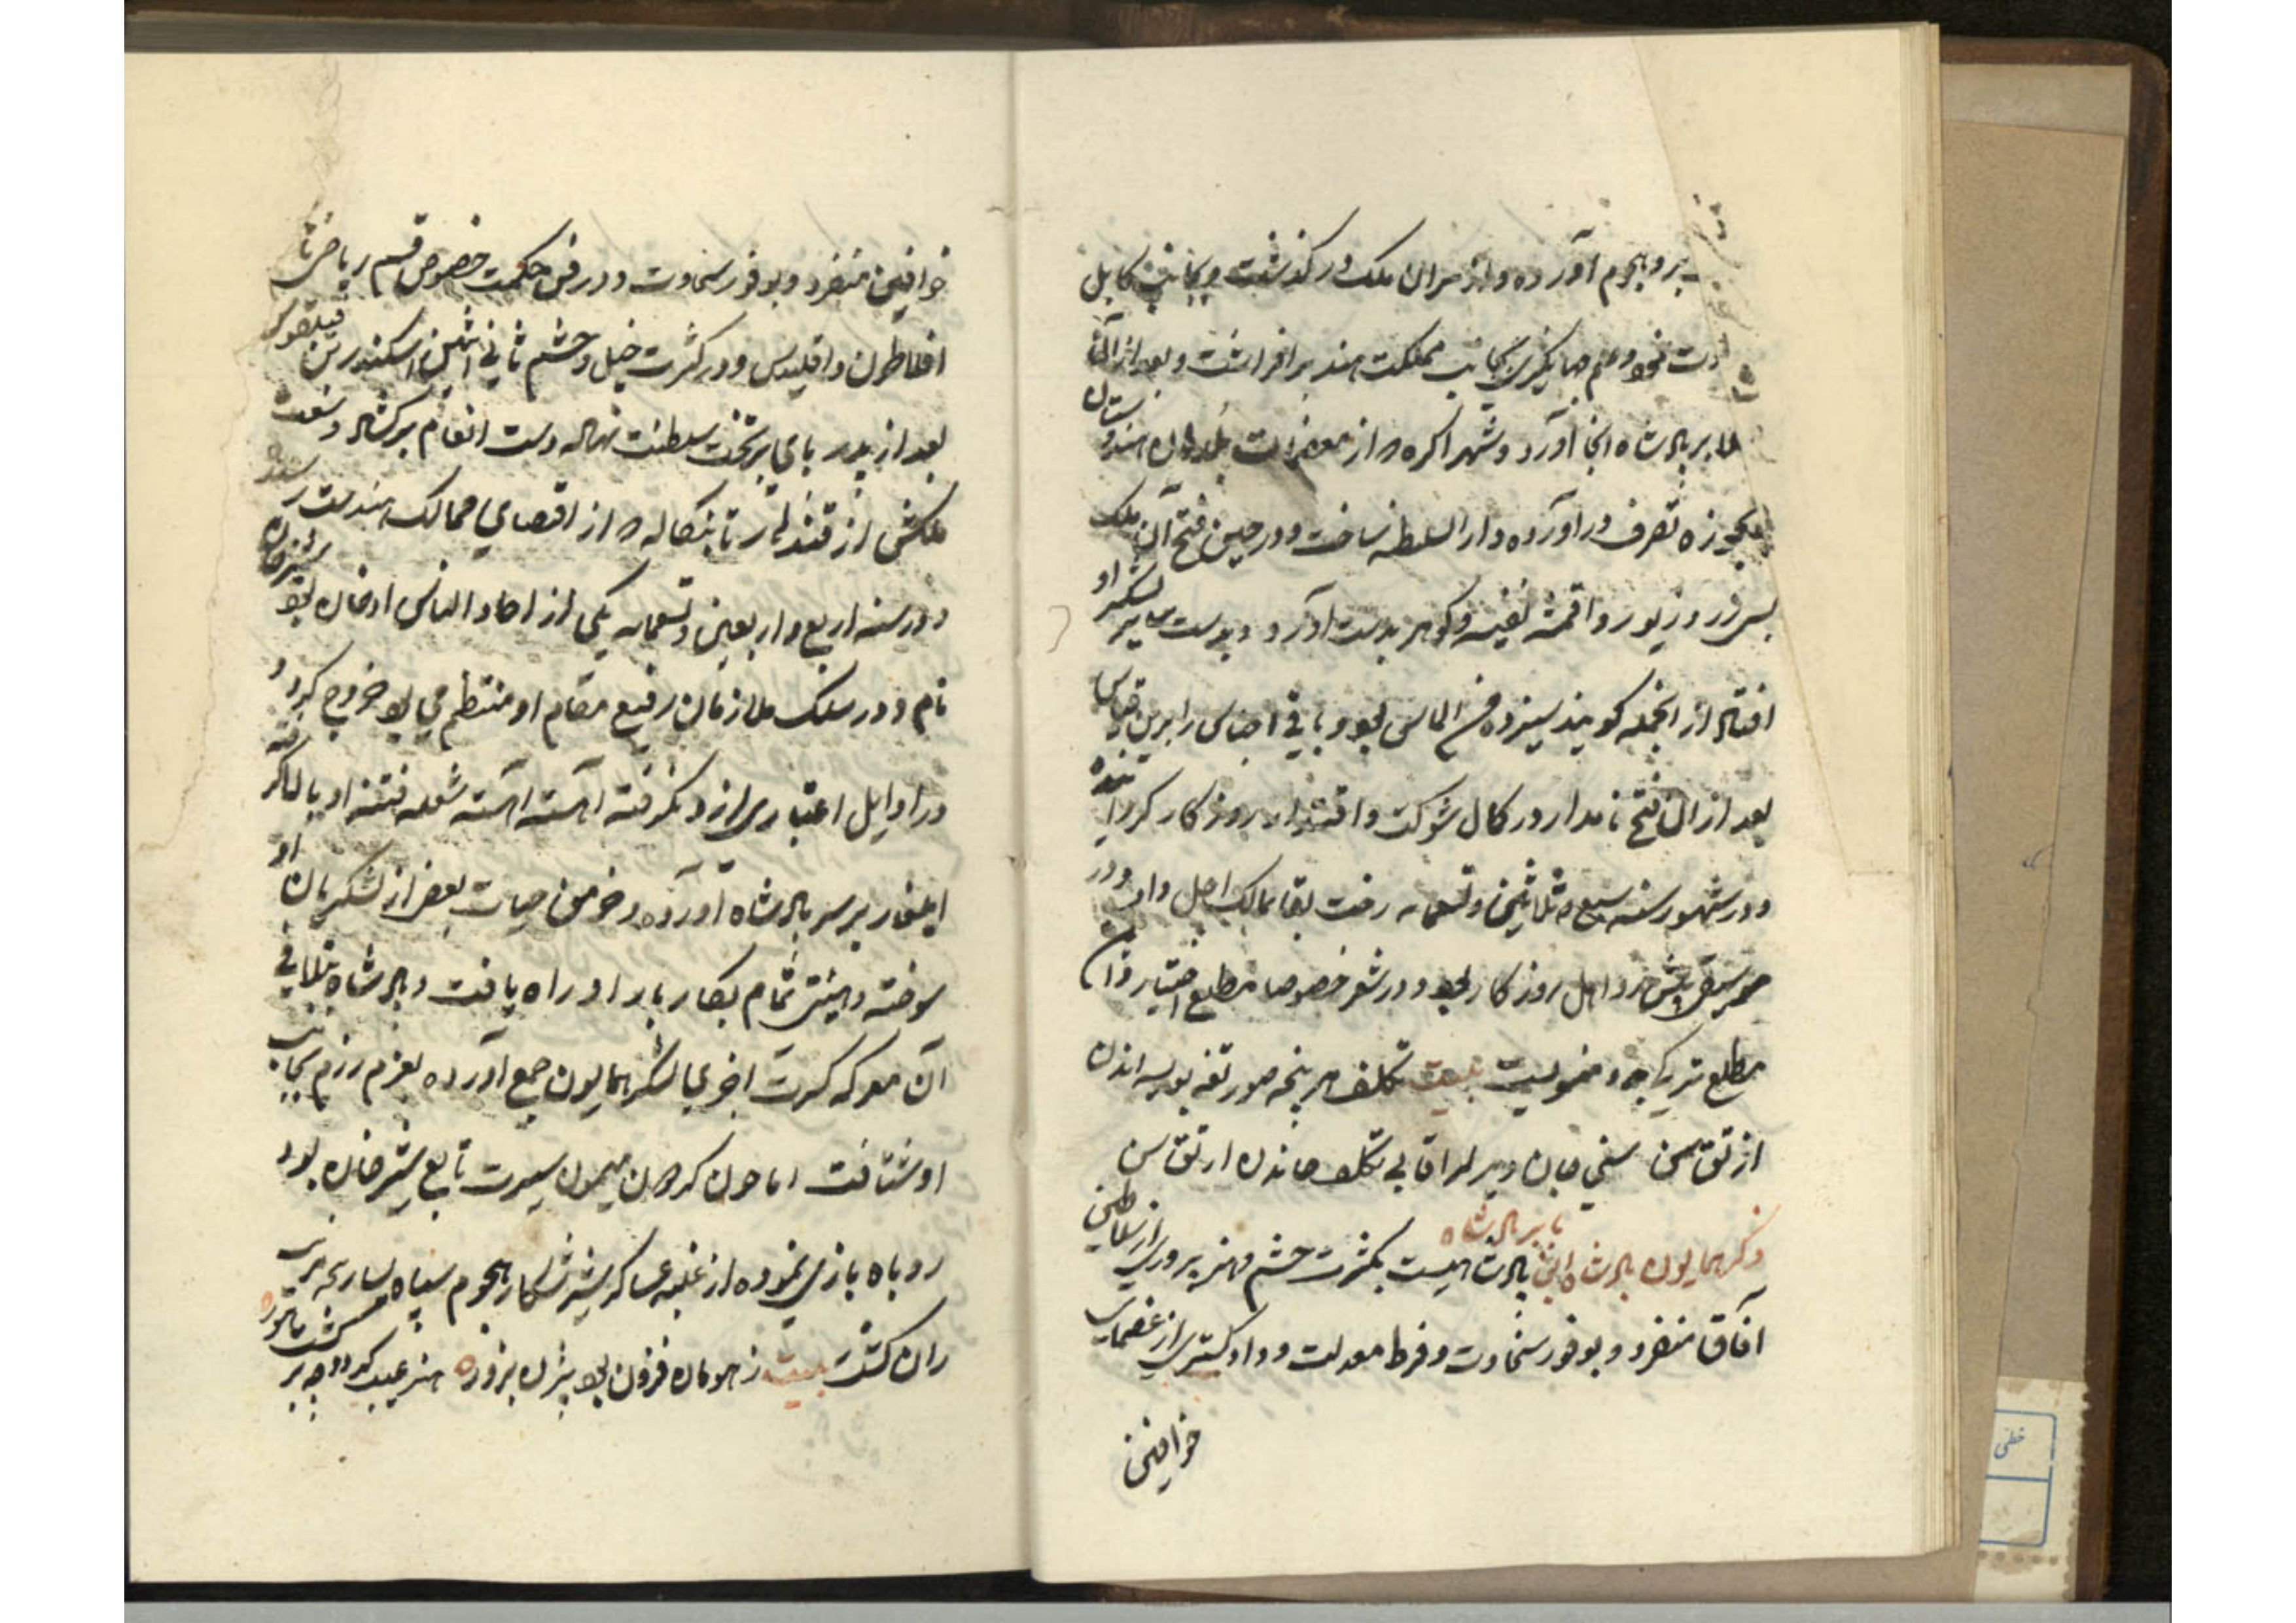 برو هجوم آورده و از سران ملک در گذشت و بجانب کابل
دت نمود و علم جهانگیری بجانب مملکت هند بر افراشت و بعد از آن
بابر پادشاه انجا آورد و شهر اکره را از معظمات بلدان هندوستان
بحوزه تصرف در آورده دار السلطنه ساخت و در حین فتح آن ملک
بس زر و زیور و اقمشه نفیسه و کوهر بدست آورد و بدست سایر لشکر او
افتاد از انجمله کویند سیزده من الماس بود و باقی اجناس را برین قیاس
بعد از آن فتح نامدار در کمال شوکت و اقتدار روزکار کذرانیده
و در شهور سنه سبع و ثلاثین و تسعمایه رخت بقا بمالک اصل داد و در
موسیقی اهل روزکار بود و در شعر خصوصا مطلع اختیار و از آن
مطلع ترکی و منسوبست بیت تکلف هر نچه صورتده بولسه اندن
از تق سن سنی جان دیرلر اما بی تکلف جاندن ارتق سن
ذکر همایون پادشاه ابن بابر پادشاه پادشاهیست بکثرت حشم و هنر پروری از سلاطین
آفاق منفرد و بوفور سخاوت و فرط معدلت و داد کستری از عظمای
خواقین
خواقین منفرد و بوفور سخاوت و در فن حکمت خصوص قسم ریاضی ثانی
افلاطون و اقلیدس و در کثرت خیل و حشم ثانی اثنین اسکندر بن فیلقوس
بعد از پدر پای بر تخت سلطنت نهاده دست انعام بر کشاد وسعت
ملکش از قندهار تا بنکاله که از اقصای ممالک هندست رسید
و در سنه اربع و اربعین و تسعمایه یکی از احاد الناس اوغان شیر خان
نام و در سلک ملازمان رفیع مقام او منتظم می بود خروج کرد و
در اوایل اعتباری ازو نکرفته آهسته آهسته شعله فتنه او بالا کرفته
ایلغار بر سر پادشاه آورده و خرمن حیات بعض از لشکریان او
سوخته و هنی تمام بکار بار او راه یافت و پادشاه بتلافی
آن معرکه کرت اخری لشکر همایون جمع آورده بعزم رزم بجانب
او شتافت اما چون کردون میمون سیرت تابع شیر خان بود
روباه بازی نموده از غلبه عساکر شیر شکار هجوم سپاه
ران کشت بیت ز هومان فزون بود بیژن بزور هنر عیب کردد چو بر کشت هور
خطی